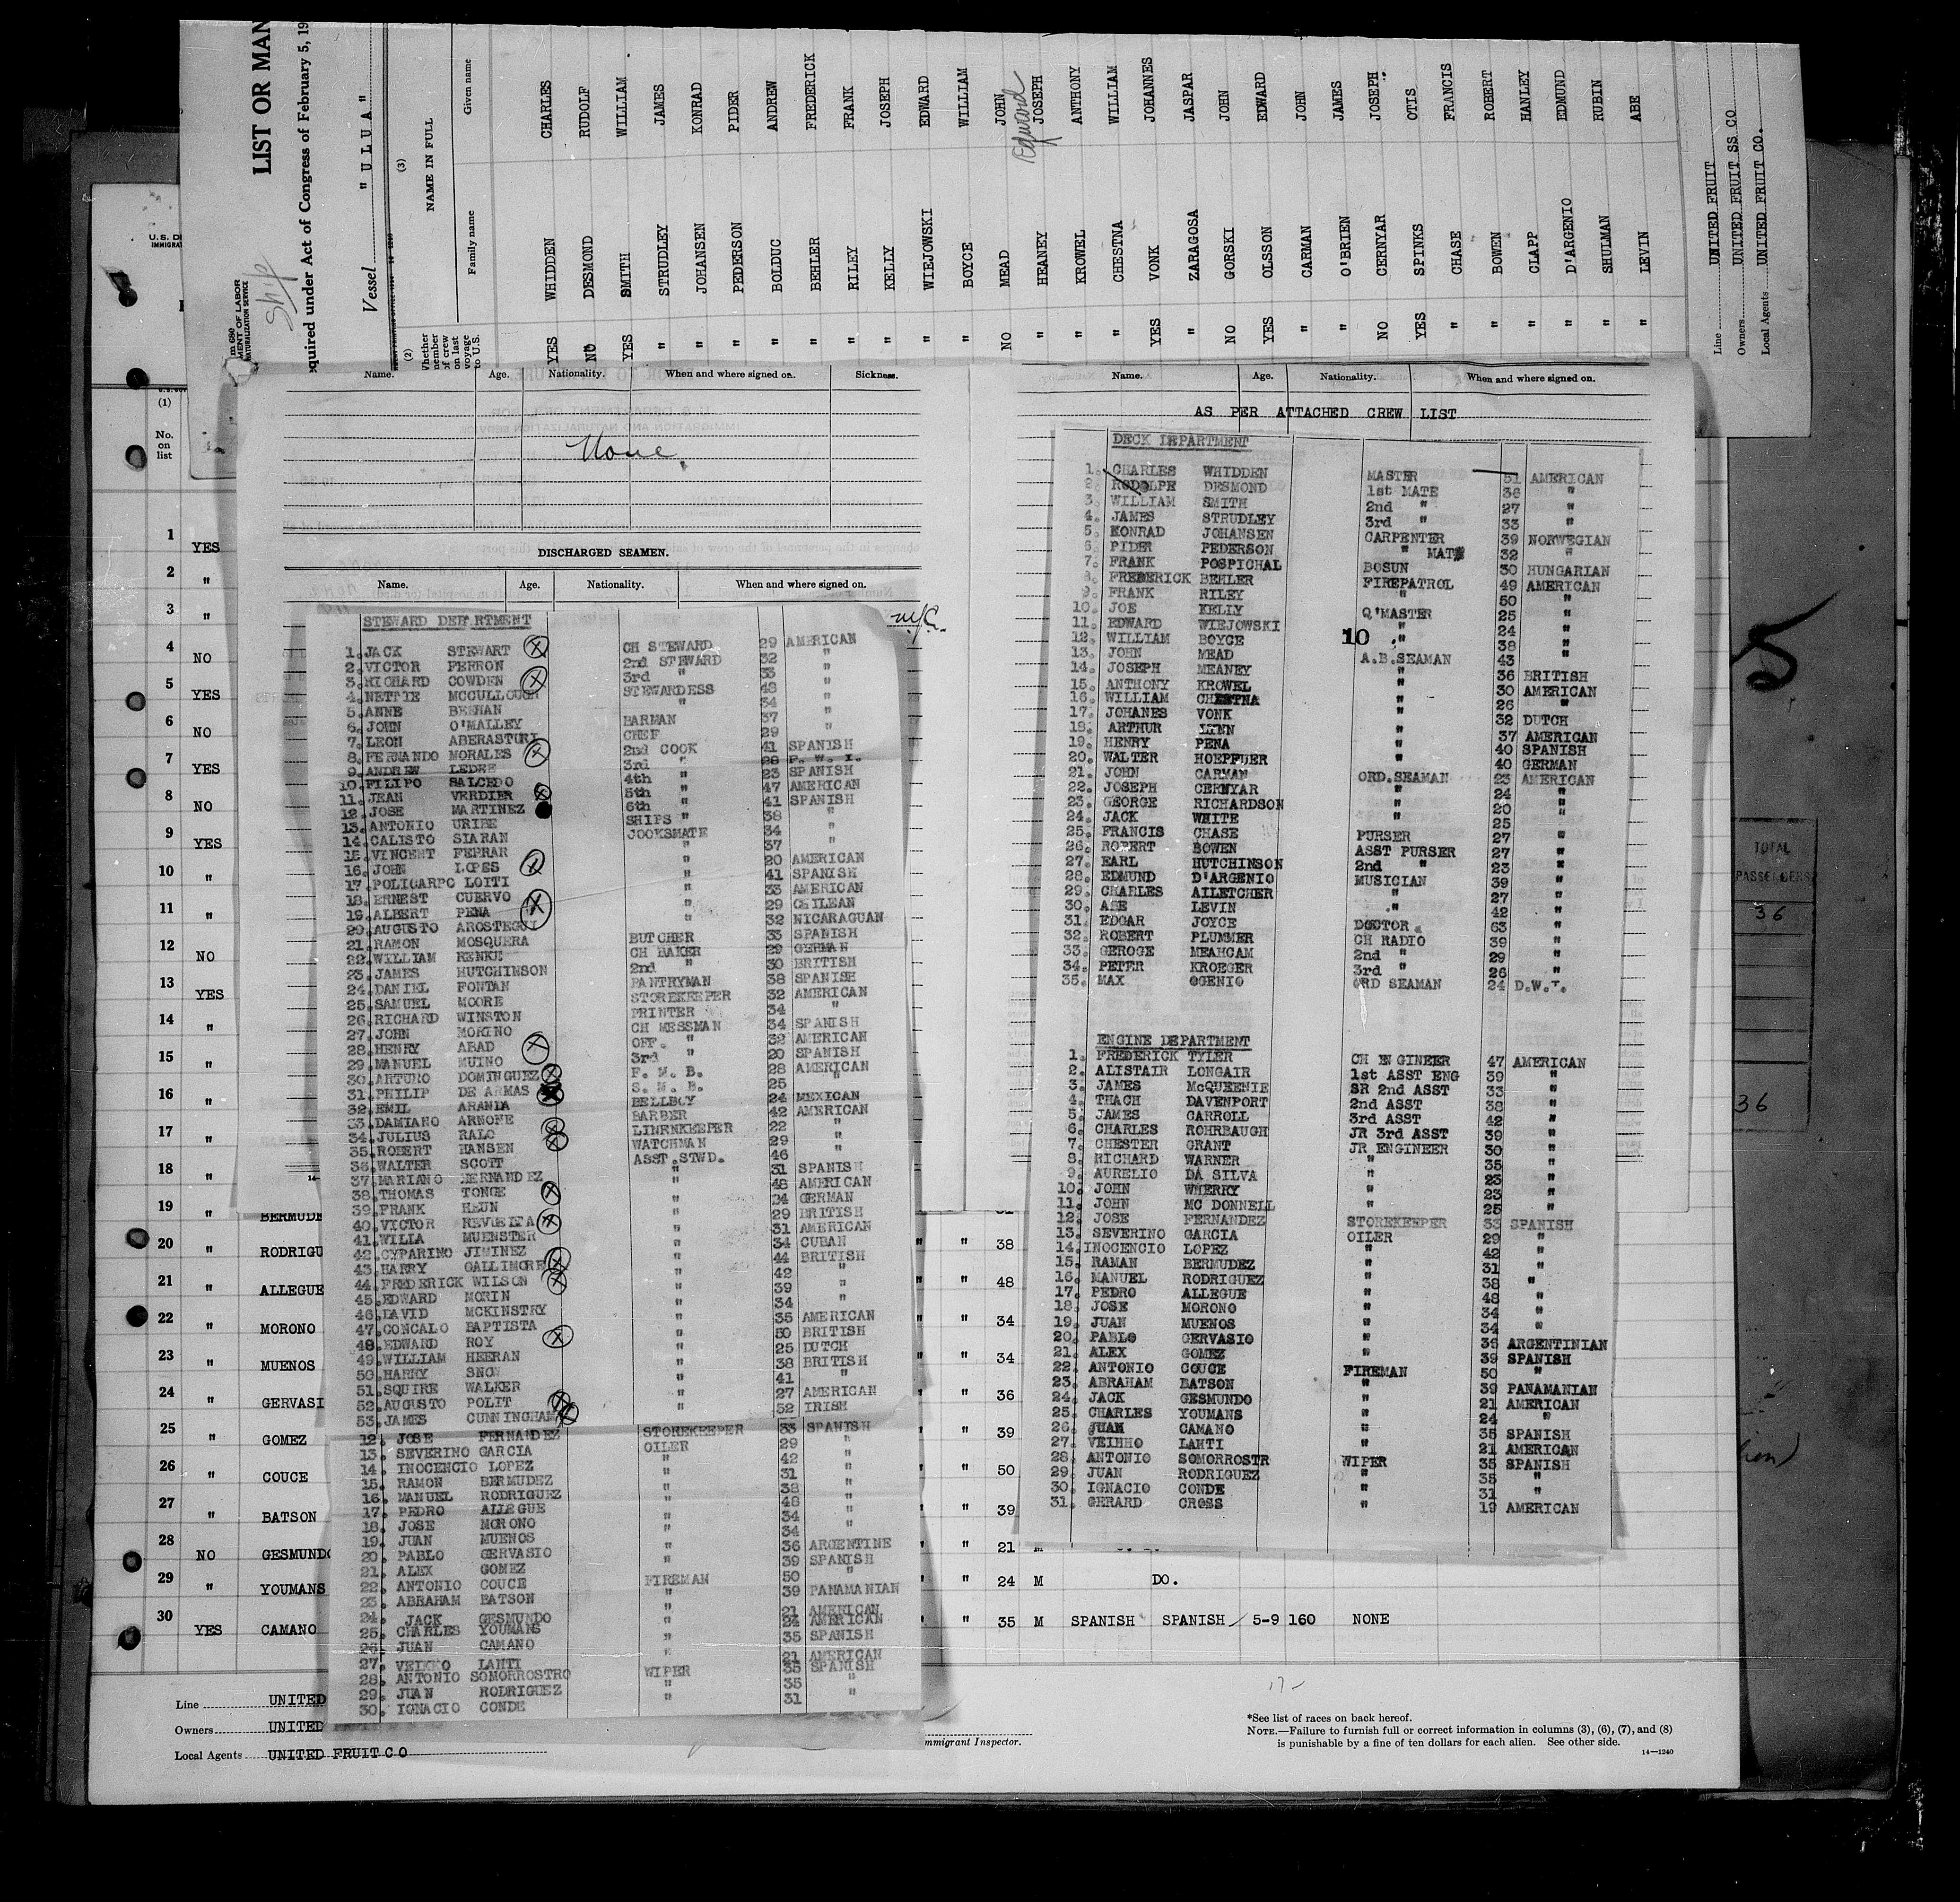 LIST OR MAN
equired under Act of Congress of February 5, 19
Vessel "ULUA"
(3)
NAME IN FULL
Family name Given name
(2)
Whether member of crew on last voyage to U.S.
YES WHIDDEN CHARLES
NO DESMOND RUDOLF
YES SMITH WILLIAM
" STRUDLEY JAMES
" JOHANSEN KONRAD
" PEDERSON PIDER
" BOLDUC ANDREW
" BEHLER FREDERICK
" RILEY FRANK
" KELLY JOSEPH
" WIEJOWSKI EDWARD
" BOYCE WILLIAM
NO MEAD JOHN
" HEANEY JOSEPH Edward
" KROWEL ANTHONY
" CHESTNA WILLIAM
YES VONK JOHANNES
" ZARAGOSA JASPAR
NO GORSKI JOHN
YES OLSSON EDWARD
" CARMAN JOHN
" O'BRIEN JAMES
NO CERNYAR JOSEPH
YES SPINKS OTIS
" CHASE FRANCIS
" BOWEN ROBERT
" CLAPP HANLEY
" D'ARGENIO EDMUND
" SHULMAN RUBIN
" LEVIN ABE
Line UNITED FRUIT
Owners UNITED FRUIT SS CO
Local Agents UNITED FRUIT CO.
Ship
U.S. DE
IMMIGRAT
m 680
MENT OF LABOR
NATURALIZATION SERVICE
(1)
No. on list
1 YES
2 "
3 "
4 NO
5 YES
6 NO
7 YES
8 NO
9 YES
10 "
11 "
12 NO
13 YES
14 "
15 "
16 "
17 "
18 "
19 " BERMUDE
20 " RODRIGU " " 38
21 " ALLEGUE " " 48
22 " MORONO " " 34
23 " MUENOS " " 34
24 " GERVASI " " 36
25 " GOMEZ " " 39
26 " COUCE " " 50
27 " BATSON " " 39
28 NO GESMUNDO " " 21
29 " YOUMANS " " 24 M DO.
30 YES CAMANO " " 35 M SPANISH SPANISH 5-9 160 NONE
Line UNITED
Owners UNITED
Local Agents UNITED FRUIT CO
mmigrant Inspector.
*See list of races on back hereof.
NOTE.—Failure to furnish full or correct information in columns (3), (6), (7), and (8)
is punishable by a fine of ten dollars for each alien. See other side.
14—1240
Name. Age. Nationality. When and where signed on. Sickness.
None
DISCHARGED SEAMEN.
Name. Age. Nationality. When and where signed on.
STEWARD DEPARTMENT
1. JACK STEWART CH STEWARD 29 AMERICAN
2. VICTOR FERRON 2nd STEWARD 32 "
3. RICHARD COWDEN 3rd " 33 "
4. NETTIE MCCULLOUGH STEWARDESS 48 "
5. ANNE BEEHAN " 34 "
6. JOHN O'MALLEY BARMAN 37 "
7. LEON ABERASTURI CHEF 29 "
8. FERNANDO MORALES 2nd COOK 41 SPANISH
9. ANDREW LEDEE 3rd " 28 F. W. I.
10. FILIPO SALCEDO 4th " 23 SPANISH
11. JEAN VERDIER 5th " 47 AMERICAN
12. JOSE MARTINEZ 6th " 41 SPANISH
13. ANTONIO URIBE SHIPS " 38 "
14. CALISTO SIARAN COOKSMATE 34 "
15. VINCENT FERRAR " 37 "
16. JOHN LOPES " 20 AMERICAN
17. POLICARPO LOITI " 41 SPANISH
18. ERNEST CUERVO " 33 AMERICAN
19. ALBERT PENA " 29 CHILEAN
20. AUGUSTO AROSTEGUI " 32 NICARAGUAN
21. RAMON MOSQUERA BUTCHER 33 SPANISH
22. WILLIAM RENKE CH BAKER 29 GERMAN
23. JAMES HUTCHINSON 2nd " 30 BRITISH
24. DANIEL FONTAN PANTRYMAN 38 SPANISH
25. SAMUEL MOORE STOREKEEPER 32 AMERICAN
26. RICHARD WINSTON PRINTER 34 "
27. JOHN MORINO CH MESSMAN 34 SPANISH
28. HENRY ABAD OFF. " 32 AMERICAN
29. MANUEL MUINO 3rd " 20 SPANISH
30. ARTURO DOMINGUEZ P. M. B. 28 AMERICAN
31. PHILIP DE ARMAS S. M. B. 25 "
32. EMIL ARANDA BELLBOY 24 MEXICAN
33. DAMIANO ARNONE BARBER 42 AMERICAN
34. JULIUS RALO LINENKEEPER 22 "
35. ROBERT HANSEN WATCHMAN 29 "
36. WALTER SCOTT ASST.STWD. 46 "
37. MARIANO HERNANDEZ " 31 SPANISH
38. THOMAS TONGE " 48 AMERICAN
39. FRANK HEUN " 24 GERMAN
40. VICTOR REVUELTA " 29 BRITISH
41. WILLA MUENSTER " 31 AMERICAN
42. CYPARINO JIMINEZ " 34 CUBAN
43. HARRY GALLIMORE " 44 BRITISH
44. FREDERICK WILSON " 42 "
45. EDWARD MORIN " 39 "
46. DAVID MCKINSTRY " 34 "
47. GONCALO BAPTISTA " 35 AMERICAN
48. EDWARD ROY " 50 BRITISH
49. WILLIAM HEERAN " 25 DUTCH
50. HARRY SNOW " 38 BRITISH
51. SQUIRE WALKER " 41 "
52. AUGUSTO POLIT " 27 AMERICAN
53. JAMES CUNNINGHAM " 52 IRISH
12. JOSE FERNANDEZ STOREKEEPER 33 SPANISH
13. SEVERINO GARCIA OILER 29 "
14. INOCENCIO LOPEZ " 42 "
15. RAMON BERMUDEZ " 31 "
16. MANUEL RODRIGUEZ " 38 "
17. PEDRO ALLEGUE " 48 "
18. JOSE MORONO " 34 "
19. JUAN MUENOS " 34 "
20. PABLO GERVASIO " 36 ARGENTINE
21. ALEX GOMEZ " 39 SPANISH
22. ANTONIO COUCE FIREMAN 50 "
23. ABRAHAM BATSON " 39 PANAMANIAN
24. JACK GESMUNDO " 21 AMERICAN
25. CHARLES YOUMANS " 24 AMERICAN
26. JUAN CAMANO " 35 SPANISH
27. VEIKKO LAHTI " 21 AMERICAN
28. ANTONIO SOMORROSTRO WIPER 35 SPANISH
29. JUAN RODRIGUEZ " 35 "
30. IGNACIO CONDE " 31 "
Name. Age. Nationality. When and where signed on.
AS PER ATTACHED CREW LIST
DECK DEPARTMENT
1. CHARLES WHIDDEN MASTER 51 AMERICAN
2. RODOLPH DESMOND 1st MATE 36 "
3. WILLIAM SMITH 2nd " 27 "
4. JAMES STRUDLEY 3rd " 33 "
5. KONRAD JOHANSEN CARPENTER 39 NORWEGIAN
6. PIDER PEDERSON " MATE 32 "
7. FRANK POSPICHAL BOSUN 30 HUNGARIAN
8. FREDERICK BEHLER FIREPATROL 49 AMERICAN
9. FRANK RILEY " 50 "
10. JOE KELLY Q'MASTER 25 "
11. EDWARD WIEJOWSKI " 24 "
12. WILLIAM BOYCE 10 " 38 "
13. JOHN MEAD A.B.SEAMAN 43 "
14. JOSEPH MEANEY " 36 BRITISH
15. ANTHONY KROWEL " 30 AMERICAN
16. WILLIAM CHESTNA " 26 "
17. JOHANES VONK " 32 DUTCH
18. ARTHUR LYNN " 37 AMERICAN
19. HENRY PENA " 40 SPANISH
20. WALTER HOEPFDER " 40 GERMAN
21. JOHN CARMAN ORD.SEAMAN 23 AMERICAN
22. JOSEPH CERNYAR " 24 "
23. GEORGE RICHARDSON " 20 "
24. JACK WHITE " 25 "
25. FRANCIS CHASE PURSER 27 "
26. ROBERT BOWEN ASST PURSER 27 "
27. EARL HUTCHINSON 2nd " 23 "
28. EDMUND D'ARGENIO MUSICIAN 39 "
29. CHARLES AILETCHER " 27 "
30. ABE LEVIN " 42 "
31. EDGAR JOYCE DOCTOR 63 "
32. ROBERT PLUMMER CH RADIO 39 "
33. GEROGE MEAHCAM 2nd " 29 "
34. PETER KROEGER 3rd " 26 "
35. MAX OGENIO ORD SEAMAN 24 D.W.I.
ENGINE DEPARTMENT
1. FREDERICK TYLER CH ENGINEER 47 AMERICAN
2. ALISTAIR LONGAIR 1st ASST ENG 39 "
3. JAMES McQUEENIE SR 2nd ASST 33 "
4. THACH DAVENPORT 2nd ASST 38 "
5. JAMES CARROLL 3rd ASST 42 "
6. CHARLES ROHRBAUGH JR 3rd ASST 39 "
7. CHESTER GRANT JR ENGINEER 30 "
8. RICHARD WARNER " 35 "
9. AURELIO DA SILVA " 23 "
10. JOHN WHERRY " 23 "
11. JOHN MC DONNELL " 25 "
12. JOSE FERNANDEZ STOREKEEPER 33 SPANISH
13. SEVERINO GARCIA OILER 29 "
14. INOCENCIO LOPEZ " 42 "
15. RAMAN BERMUDEZ " 31 "
16. MANUEL RODRIGUEZ " 38 "
17. PEDRO ALLEGUE " 48 "
18. JOSE MORONO " 34 "
19. JUAN MUENOS " 34 "
20. PABLO GERVASIO " 36 ARGENTINIAN
21. ALEX GOMEZ " 39 SPANISH
22. ANTONIO COUCE FIREMAN 50 "
23. ABRAHAM BATSON " 39 PANAMANIAN
24. JACK GESMUNDO " 21 AMERICAN
25. CHARLES YOUMANS " 24 "
26. JUAN CAMANO " 35 SPANISH
27. VEIHHO LAHTI " 21 AMERICAN
28. ANTONIO SOMORROSTR WIPER 35 SPANISH
29. JUAN RODRIGUEZ " 35 "
30. IGNACIO CONDE " 31 "
31. GERARD CROSS " 19 AMERICAN
TOTAL
PASSENGERS
36
36